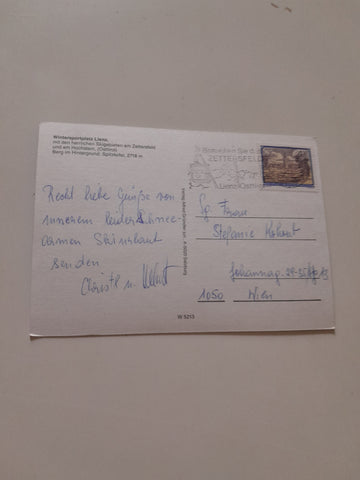 Wintersportplatz Lienz,
mit den herrlichen Skigebieten am Zettersfeld
und am Hochstein, (Osttirol)
Berg im Hintergrund: Spitzkofel, 2718 m
Besuchen Sie d
ZETTERSFELD
Lienz/Osttirol
Recht liebe Grüße von
unserem leider Schnee-
armen Skiurlaub
senden
Christl u.
Fr. Frau
Stefanie
Johannag. 29-35
1050 Wien
W 5213